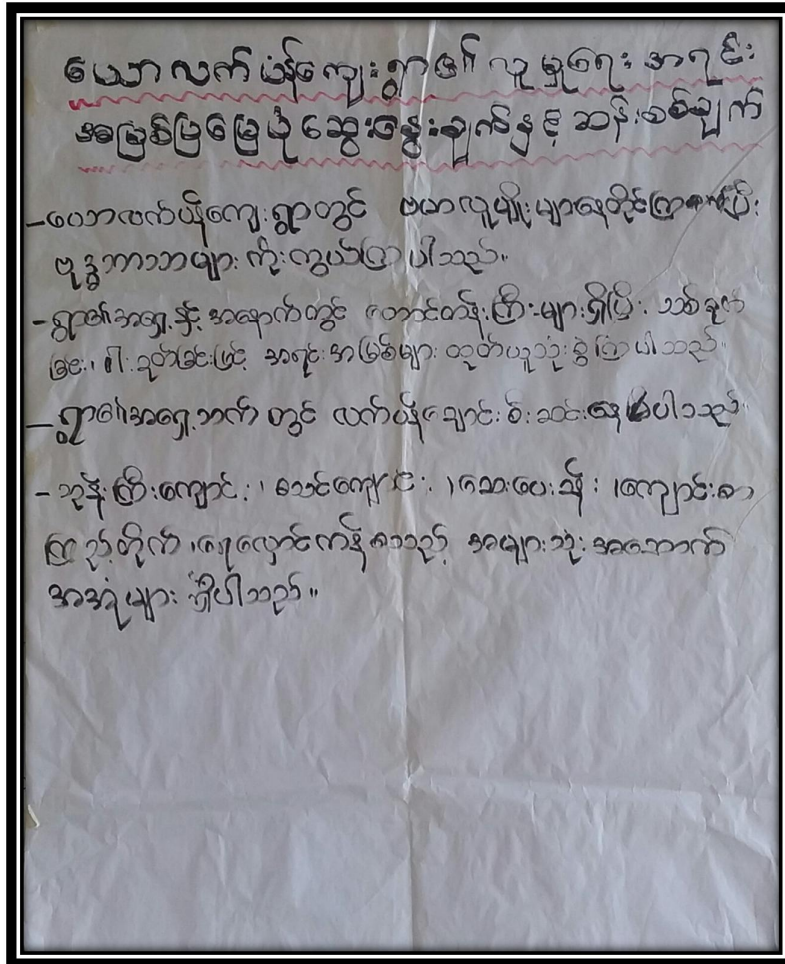 ယောလက်ပံကျေးရွာ၏ လူမှုရေး အရင်း
အမြစ်ပြမြေပုံ ဆွေးနွေးချက်နှင့် ဆန်းစစ်ချက်
- ယောလက်ပံကျေးရွာတွင် ဗမာလူမျိုးများနေထိုင်ကြပြီး
ဗုဒ္ဓဘာသာများ ကိုးကွယ်ကြပါသည်။
- ရွာ၏အရှေ့နှင့် အနောက်တွင် တောင်တန်းကြီးများရှိပြီး သစ်ခုတ်
ခြင်း၊ ဝါးခုတ်ခြင်းဖြင့် အရင်းအမြစ်များ ထုတ်ယူသုံးစွဲကြပါသည်။
- ရွာ၏အရှေ့ဘက် တွင် လက်ပံချောင်း စီးဆင်းနေပါသည်။
- ဘုန်းကြီးကျောင်း၊ စာသင်ကျောင်း၊ ဆေးပေးခန်း၊ ကျောင်းစာ
ကြည့်တိုက်၊ ရေလှောင်ကန် စသည့် အများသုံး အဆောက်
အအုံများ ရှိပါသည်။